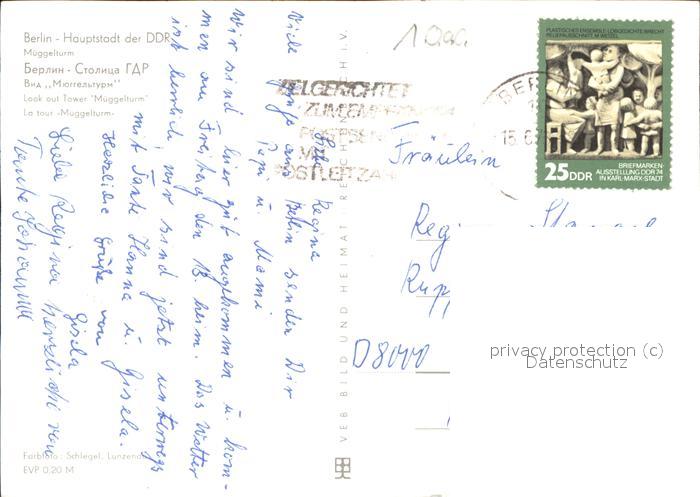 Berlin - Hauptstadt der DDR
Müggelturm
Берлин - Столица ГДР
Вид ,,Мюггельтурм"
Look out Tower "Müggelturm"
La tour -Müggelturm-
10,00.
Liebe Regina
Viele Grüße aus Berlin senden Dir
Papi u. Mami
Wir sind hier gut angekommen u. kom-
men am Freitag den 18. heim. Das Wetter
ist herrlich, wir sind jetzt unterwegs
mit Tante Hanna u. Gisela.
Herzliche Grüße von
Gisela
Liebe Regina herzlichst von
Tante Johanna
Farbfoto: Schlegel, Lunzenau
EVP 0,20 M
VEB BILD UND HEIMAT REICHENBACH I.V.
ZIELGERICHTET
ZUM EMPFÄNGER
POSTSENDUNGEN
MIT
POSTLEITZAHL
BERLIN
15.6.7
PLASTISCHES ENSEMBLE »LOBGEDICHTE« BRECHT
RELIEFAUSSCHNITT, M WETZEL
25 DDR
BRIEFMARKEN-
AUSSTELLUNG DDR 74
IN KARL-MARX-STADT
Fräulein
Reg
Rup
D8000
privacy protection (c)
Datenschutz